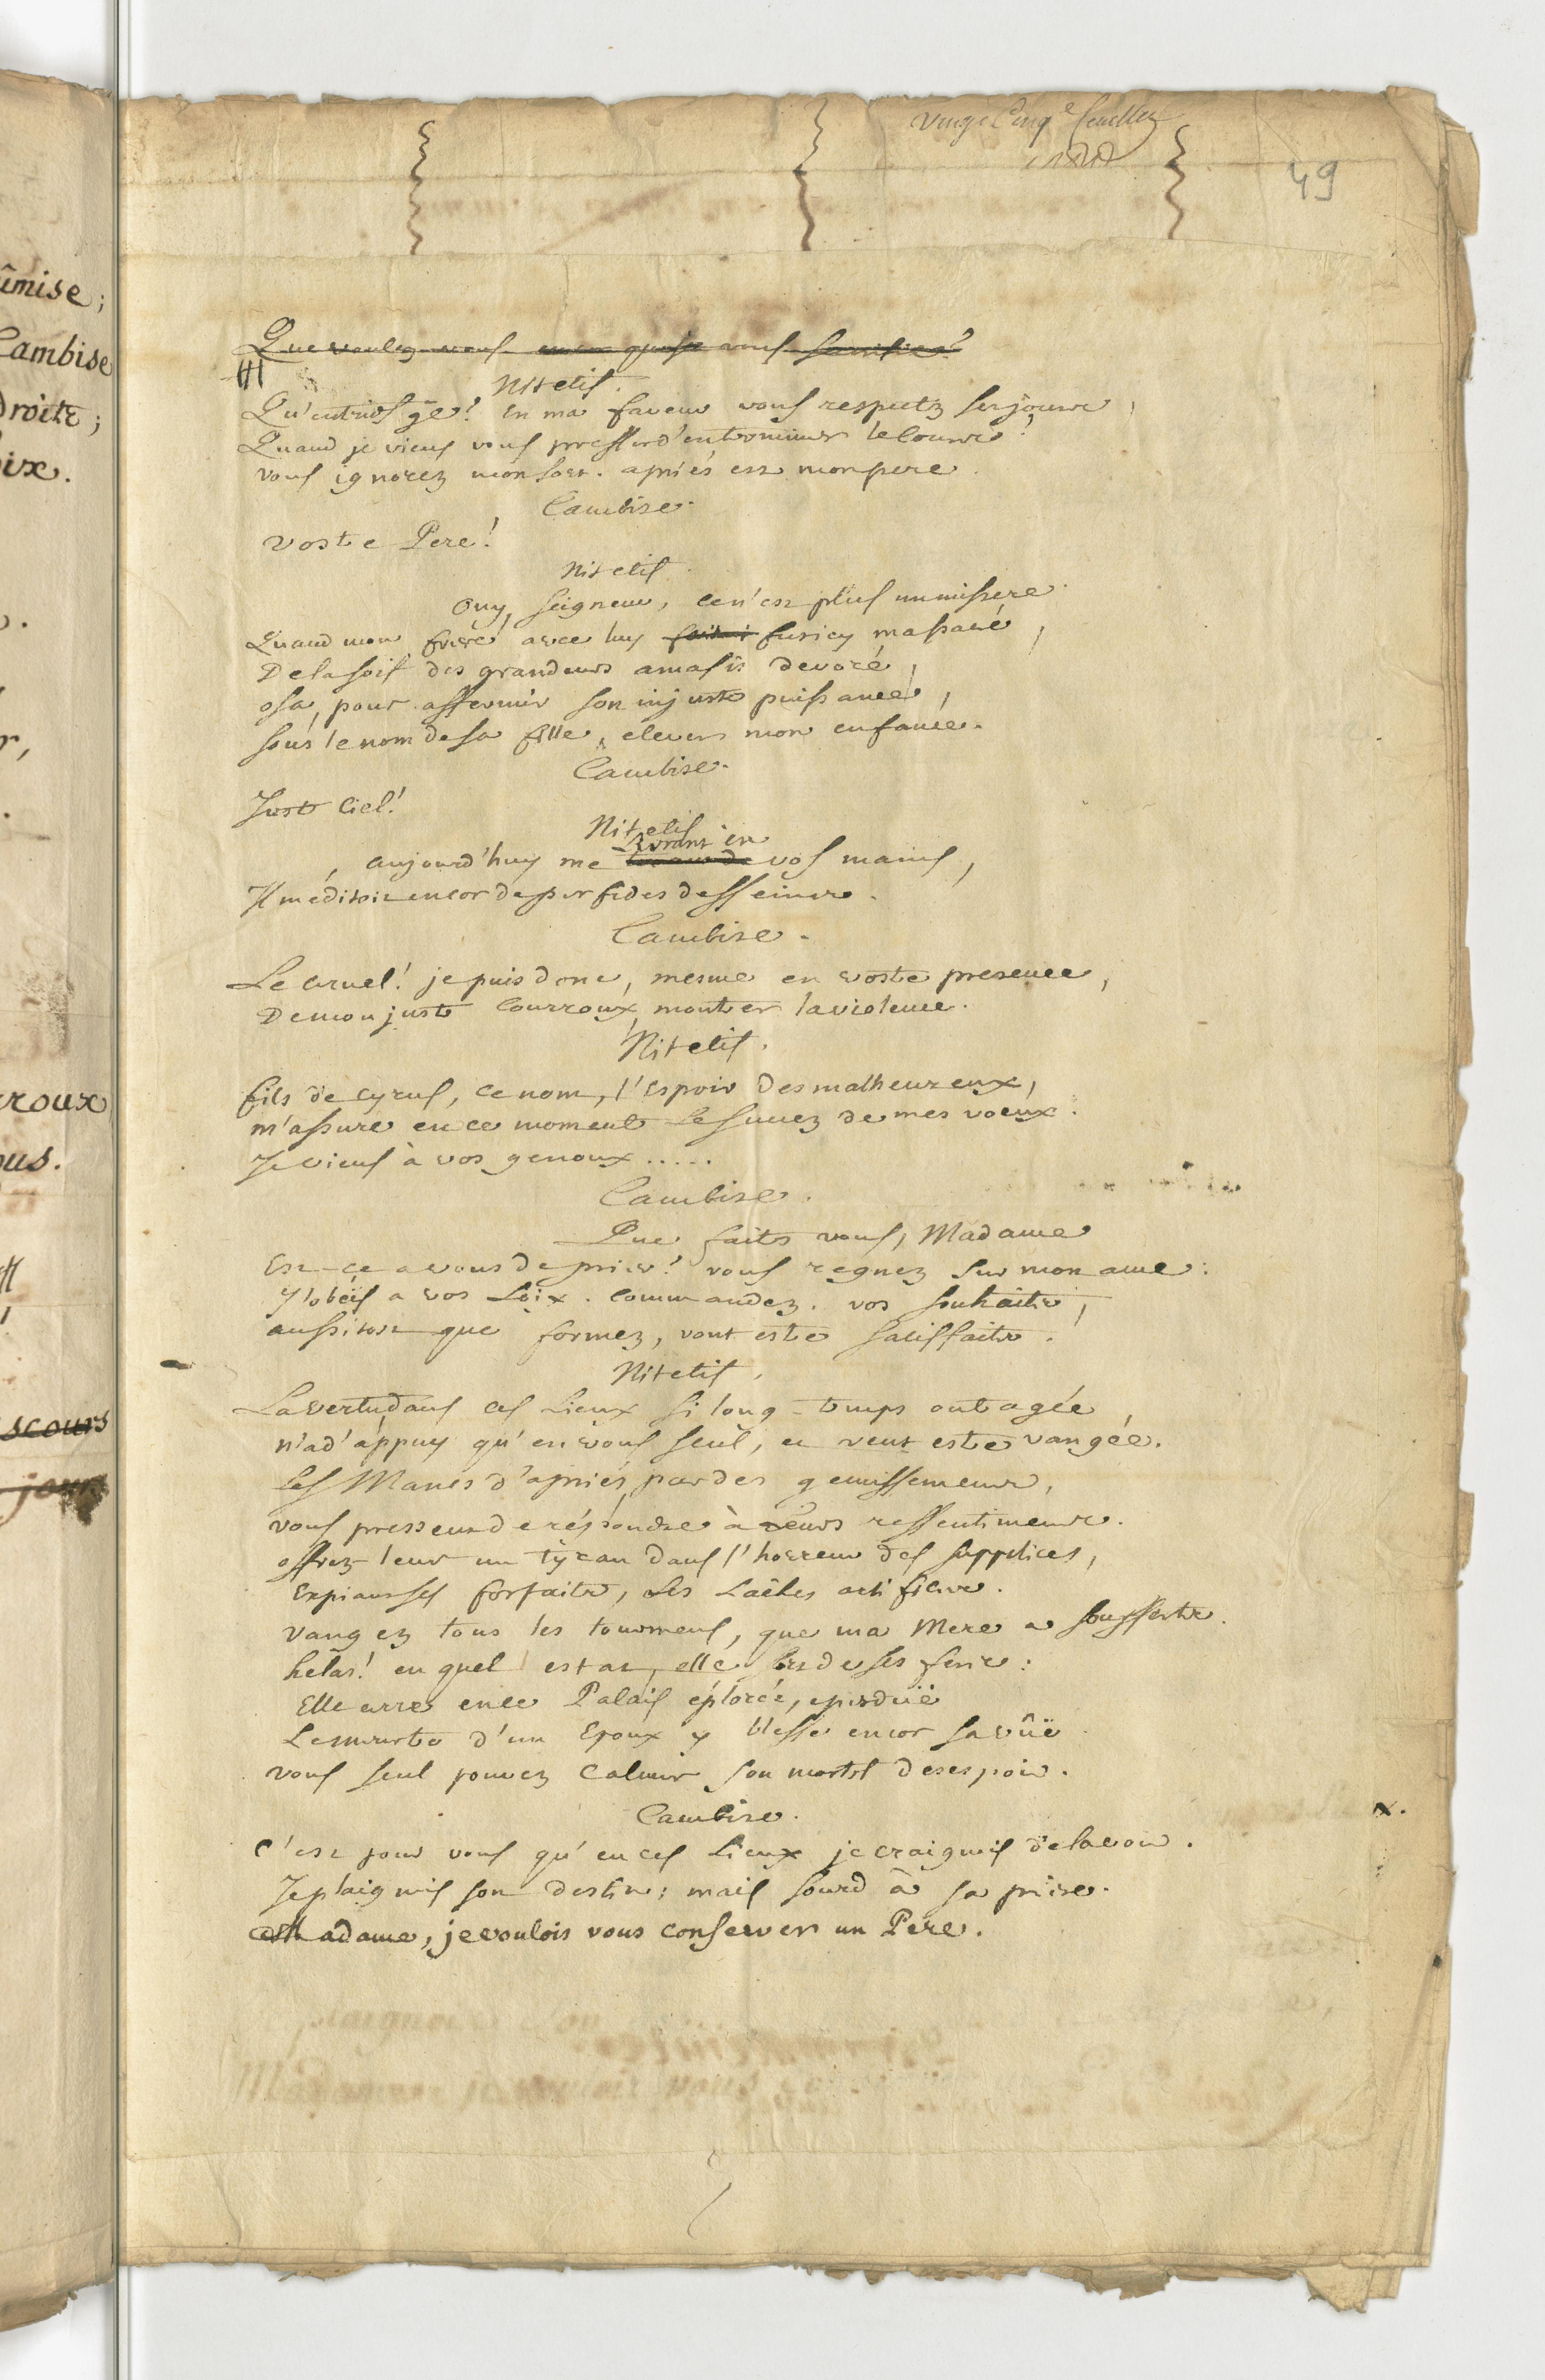 Vingt Cinq.e feuillet
49
Que voulez vous vous
Nitetis.
Qu'entens ie! En ma faveur vous respectez ses jours,
Quand je viens vous presser d'en terminer le cours!
vous ignorez mon sort. apriés est mon pere.
Cambise.
Vostre Pere!
Nitetis.
Ouy, Seigneur, ce n'est plus un mistere.
Quand mon frere avec luy fut icy massacré,
De la soif des grandeurs amasis devoré,
osa, pour affermir son injuste puissance,
sous le nom de sa fille, elever mon enfance.
Cambise.
Juste Ciel!
Nitetis
aujourd'huy me livrant en vos mains,
Il méditoit encor de perfides desseins.
Cambise.
Le cruel! je puis donc, mesme en vostre presence,
De mon juste Courroux, montrer la violence.
Nitetis.
fils de Cyrus, ce nom, l'Espoir des malheureux,
m'assure en ce moment le succez de mes voeux.
Je viens à vos genoux .....
Cambise.
Que faites vous, Madame
Est-ce a vous de prier? vous regnez sur mon ame:
J'obéis a vos Loix. Commandez. vos souhaits,
aussitost que formez, vont estre satisfaits.
Nitetis.
La vertu dans ces Lieux si long-temps outragée,
n'a d'appuy qu'en vous seul, et veut estre vangée.
Les Manes d'apriés, par des gemissemens,
vous pressent de répondre à leurs ressentimens.
offrez-leur un tÿran dans l'horreur des supplices,
Expiant ses forfaits, ses Lâches artifices.
Vangez tous les tourmens, que ma Mere a soufferts.
helas! en quel estat, elle sort de ses fers:
Elle erre en ce Palais éplorée, eperduë
Le meurtre d'un Epoux y blesse encor sa vûë
vous seul pouvez Calmer son mortel desespoir.
Cambise.
C'est pour vous qu'en ces Lieux je craignis de la voir.
Je plaignis son destin; mais sourd à sa priere.
Madame, je voulois vous conserver un Pere.
imise;
Cambise
droite;
oix.
rroux
ous.
scours
jours